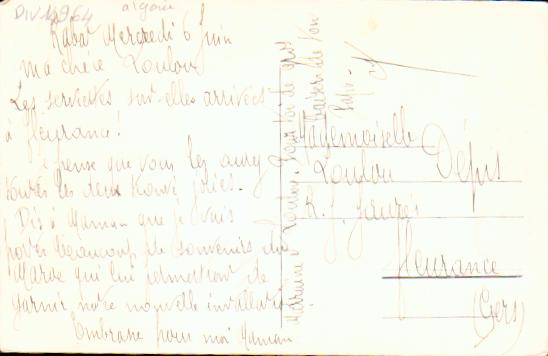 DIV 12964
algérie
Rabat Mercredi 6 Juin
ma chère Loulou
Les serviettes sont-elles arrivées
à fleurance!
Je pense que vous les aurez
toutes les deux trouvé jolies.
Dis à Maman que je vais
beaucoup de souvenirs du
Maroc qui lui permettront de
garnir notre nouvelle
Embrasse pour moi Maman
Loulou. pour toi de gros
baisers de ton
Mademoiselle
Loulou Dépis
R. J. Jaurès
fleurance
(Gers)